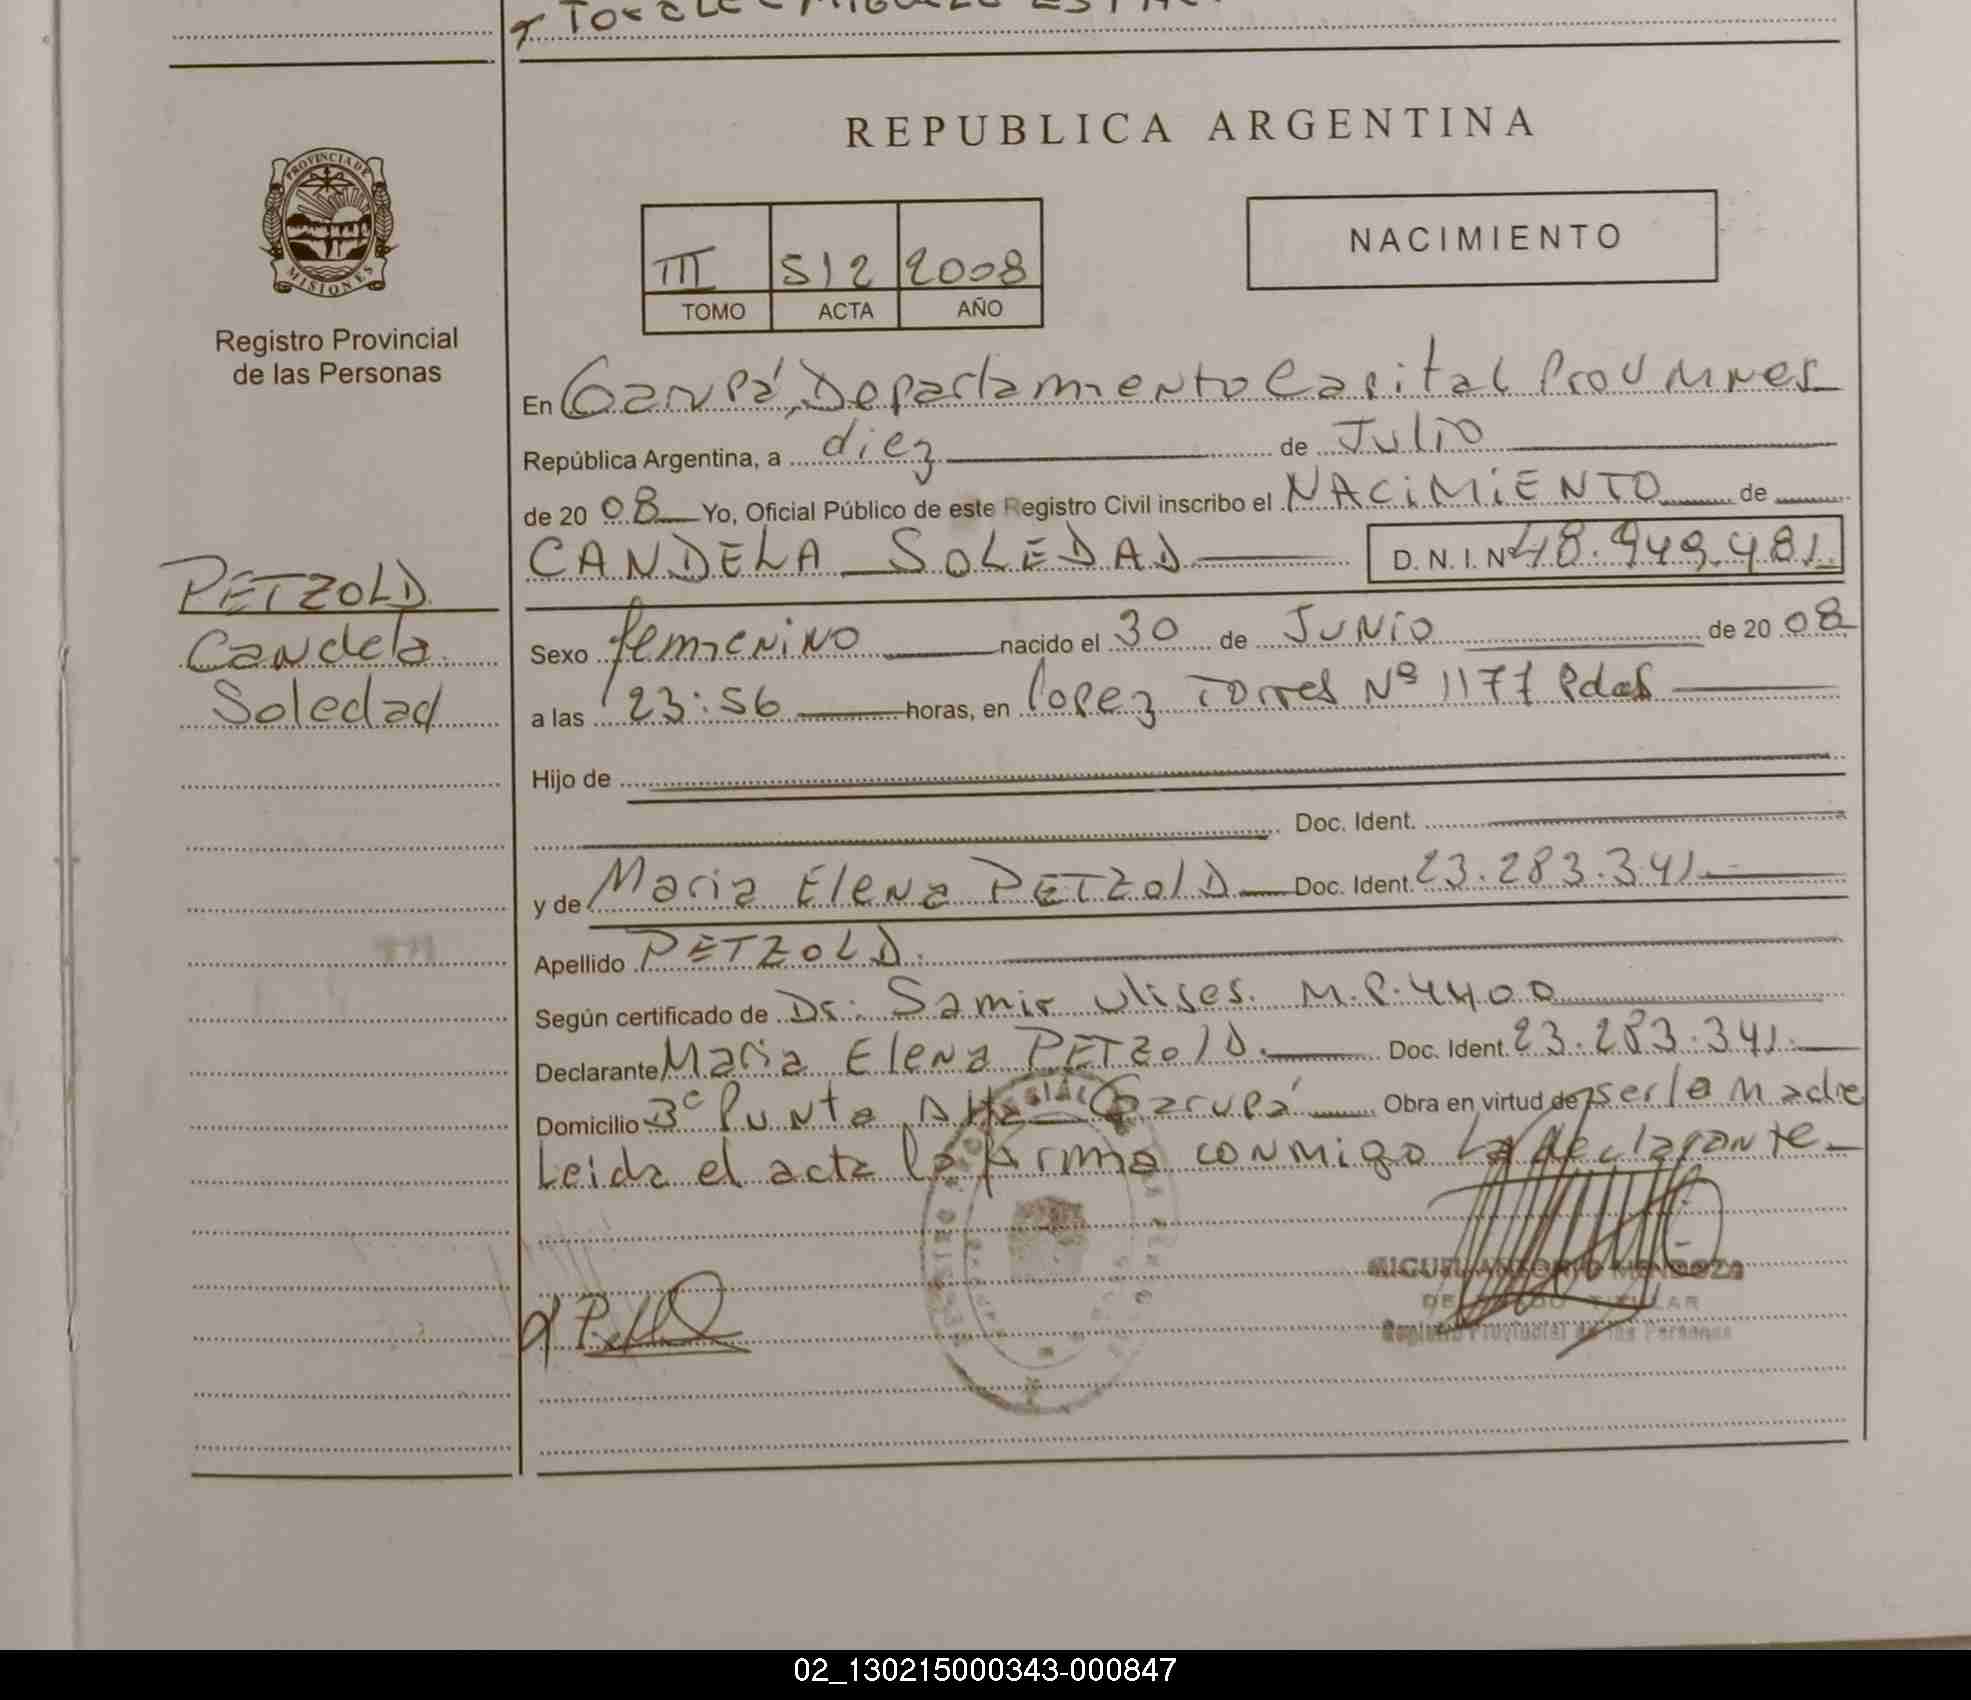 REPUBLICA ARGENTINA
PROVINCIA DE
MISIONES
Registro Provincial
de las Personas
III 512 2008
TOMO ACTA AÑO
NACIMIENTO
En Garupá, Departamento Capital Prov Mnes
República Argentina, a diez de Julio
de 2008 Yo, Oficial Público de este Registro Civil inscribo el NACIMIENTO de
CANDELA SOLEDAD D.N.I. Nº 48.949.481
PETZOLD
Candela
Soledad
Sexo femenino nacido el 30 de JUNIO de 2008
a las 23:56 horas, en Lopez Torres Nº 1177 Pdas
Hijo de
Doc. Ident.
y de Maria Elena PETZOLD Doc. Ident. 23.283.341
Apellido PETZOLD
Según certificado de Dr: Samir Ulises. M.P. 4400
Declarante Maria Elena PETZOLD. Doc. Ident. 23.283.341
Domicilio Bº Punta Alta Garupá Obra en virtud de ser la Madre
Leida el acta la firma conmigo La declarante
MIGUEL ANTONIO MENDOZA
DELEGADO TITULAR
Registro Provincial de las Personas
02_130215000343-000847